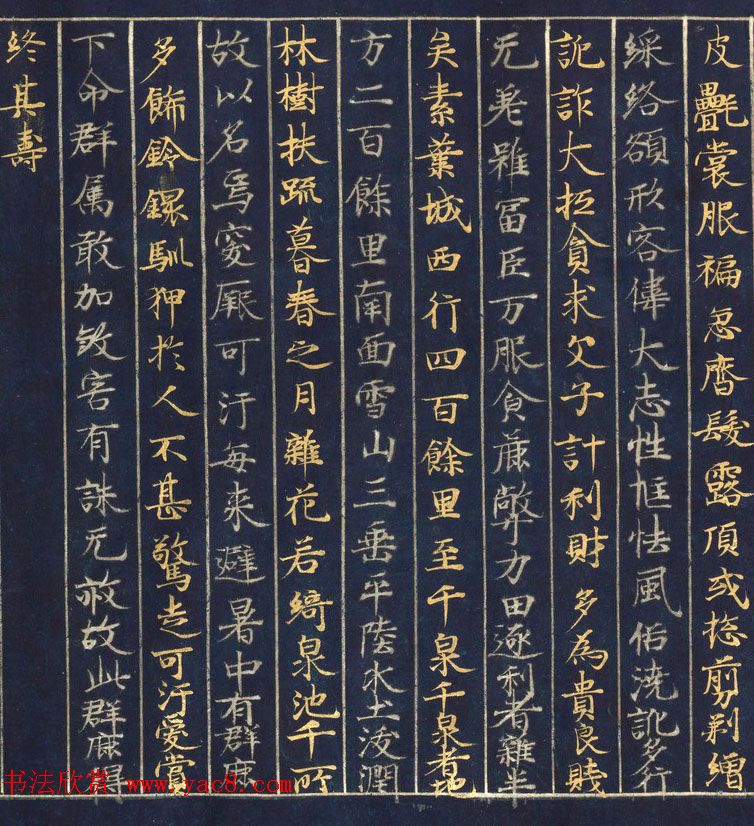 皮氎裳服褊急齊髮露頂或捴剪剃繒
綵絡額形容偉大志性恇怯風俗澆訛多行
詭詐大抵貪求父子計利財多為貴良賤
无差雖冨臣万服食麁弊力田逐利者雜半
矣素葉城西行四百餘里至千泉千泉者地
方二百餘里南面雪山三垂平陸水土沃潤
林樹扶疏暮春之月雜花若綺泉池千所
故以名焉突厥可汗每来避暑中有群鹿
多飾鈴鐶馴狎於人不甚驚走可汗愛賞
下命群属敢加煞害有誅无赦故此群鹿得
終其壽
书法欣赏 www.yac8.com